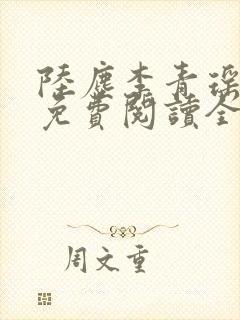 陸塵李青瑤
免費閱讀全
周文重